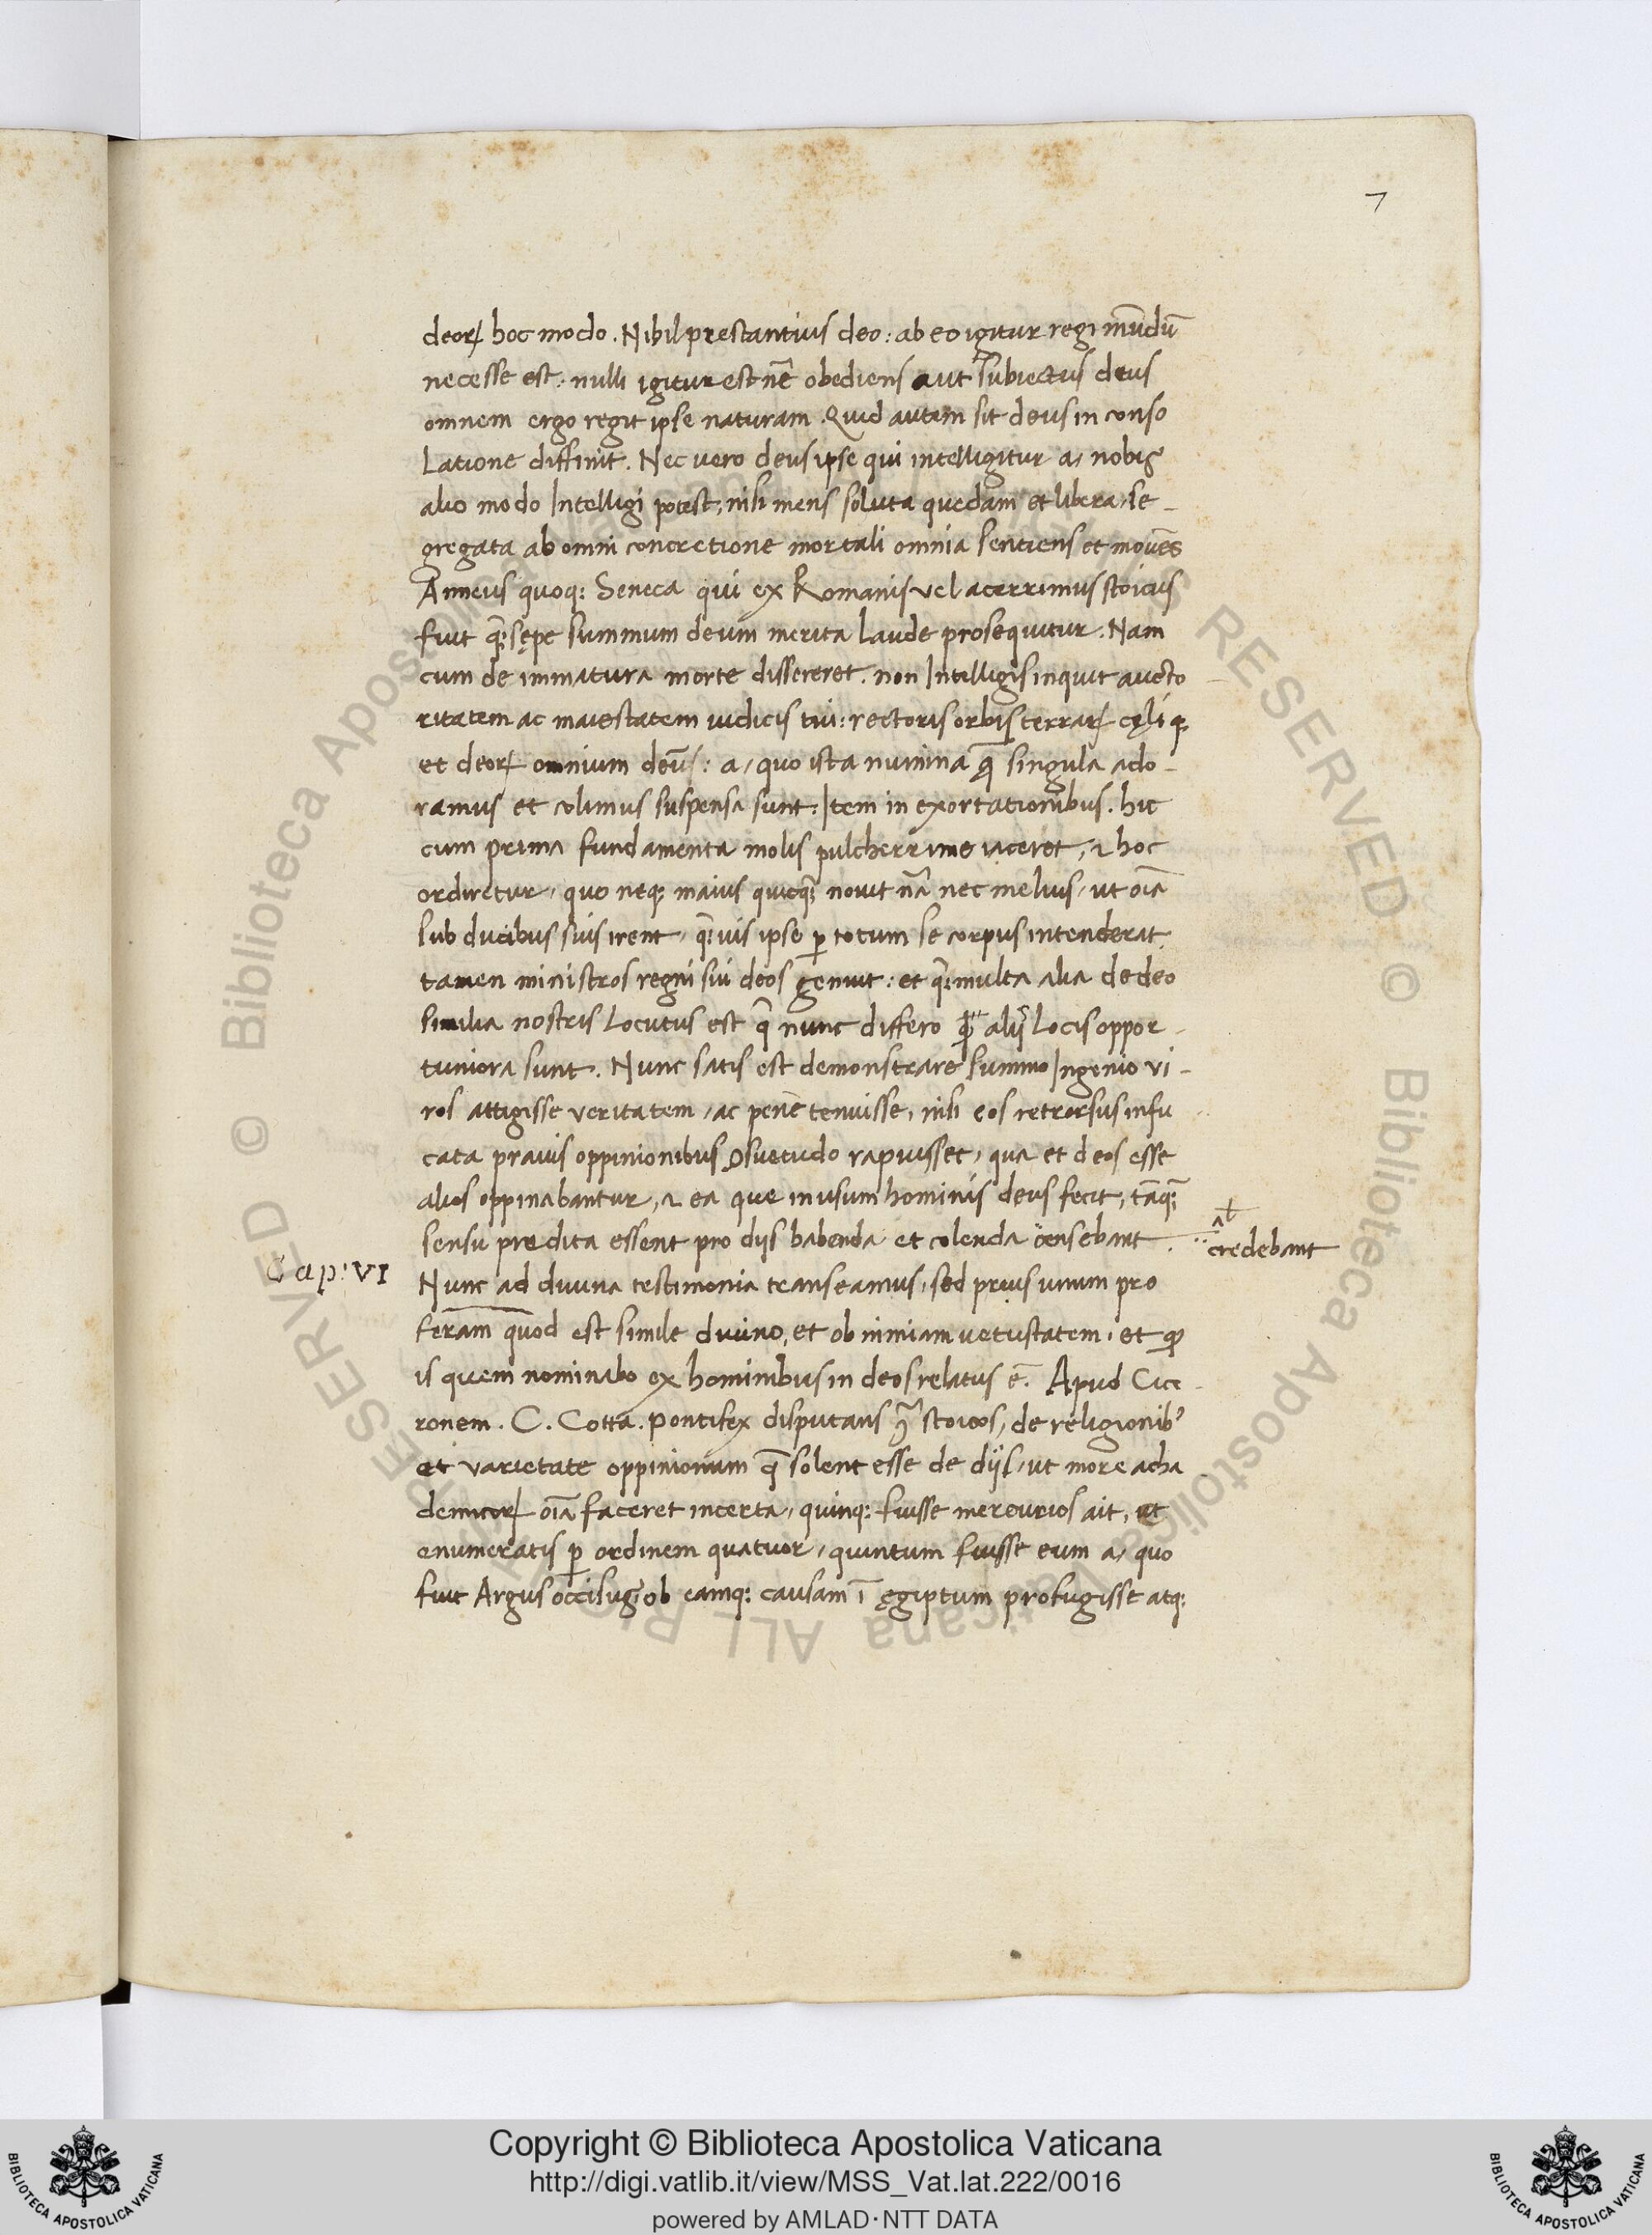 7
deoꝝ hoc modo. Nihil prestantius deo: ab eo igitur regi mūdū
necesse est: nulli igitur est nēe obediens aut subiectus deus
omnem ergo regit ipse naturam. Quid autem sit deus in conso
latione diffinit. Nec vero deus ipse qui intelligitur a, nobis
alio modo Intelligi potest, nisi mens soluta quedam et libera, se-
gregata ab omni concretione mortali omnia sentiens et mouēs
Anneus quoq: Seneca qui ex Romanis vel acerrimus stoicus
fuit q̄: sępe summum deum merita laude prosequitur. Nam
cum de immatura morte dissereret. non Intelligis inquit aucto
ritatem ac maiestatem iudicis tui: rectoris orbis terraꝝ cęliq
et deoꝝ omnium deū: a, quo ista numina q̄ singula ado-
ramus et colimus suspensa sunt. Item in exortationibus. hic
cum prima fundamenta molis pulcherrime iaceret, & hoc
ordiretur, quo neq; maius quicq̄ nouit nā nec melius, ut oīa
sub ducibus suis irent, q̄:uis ipse ꝑ totum se corpus intenderat
tamen ministros regni sui deos genuit: et q̄: multa alia de deo
similia nostris locutus est q̄ nunc differo ꝙ alijs locis oppor-
tuniora sunt. Nunc satis est demonstrare summo Ingenio vi-
ros attigisse veritatem, ac penē tenuisse, nisi eos retrorsus infu
cata prauis oppinionibus ꝯsuetudo rapuisset, qua et deos esse
alios oppinabantur, & ea que in usum hominis deus fecit, tāq̄:
sensu predita essent pro diis habenda et colenda censebant.
aƚ credebant
Cap: VI
Nunc ad diuina testimonia transeamus, sed prius unum pro
feram quod est simile diuino, et ob nimiam uetustatem, et ꝙ
is quem nominabo ex hominibus in deos relatus ē. Apud Cice-
ronem. C. Cotta. pontifex disputans ꝯ̄ stoicos, de religionibꝰ
et varietate oppinionum q̄ solent esse de dijs, ut more acha
demicoꝝ oīa faceret incerta, quinq: fuisse mercurios ait, et
enumeratis ꝑ ordinem quatuor, quintum fuisse eum a, quo
fuit Argus occisus, ob eamq: causam ī ęgiptum profugisse atq:
Copyright © Biblioteca Apostolica Vaticana
http://digi.vatlib.it/view/MSS_Vat.lat.222/0016
powered by AMLAD·NTT DATA